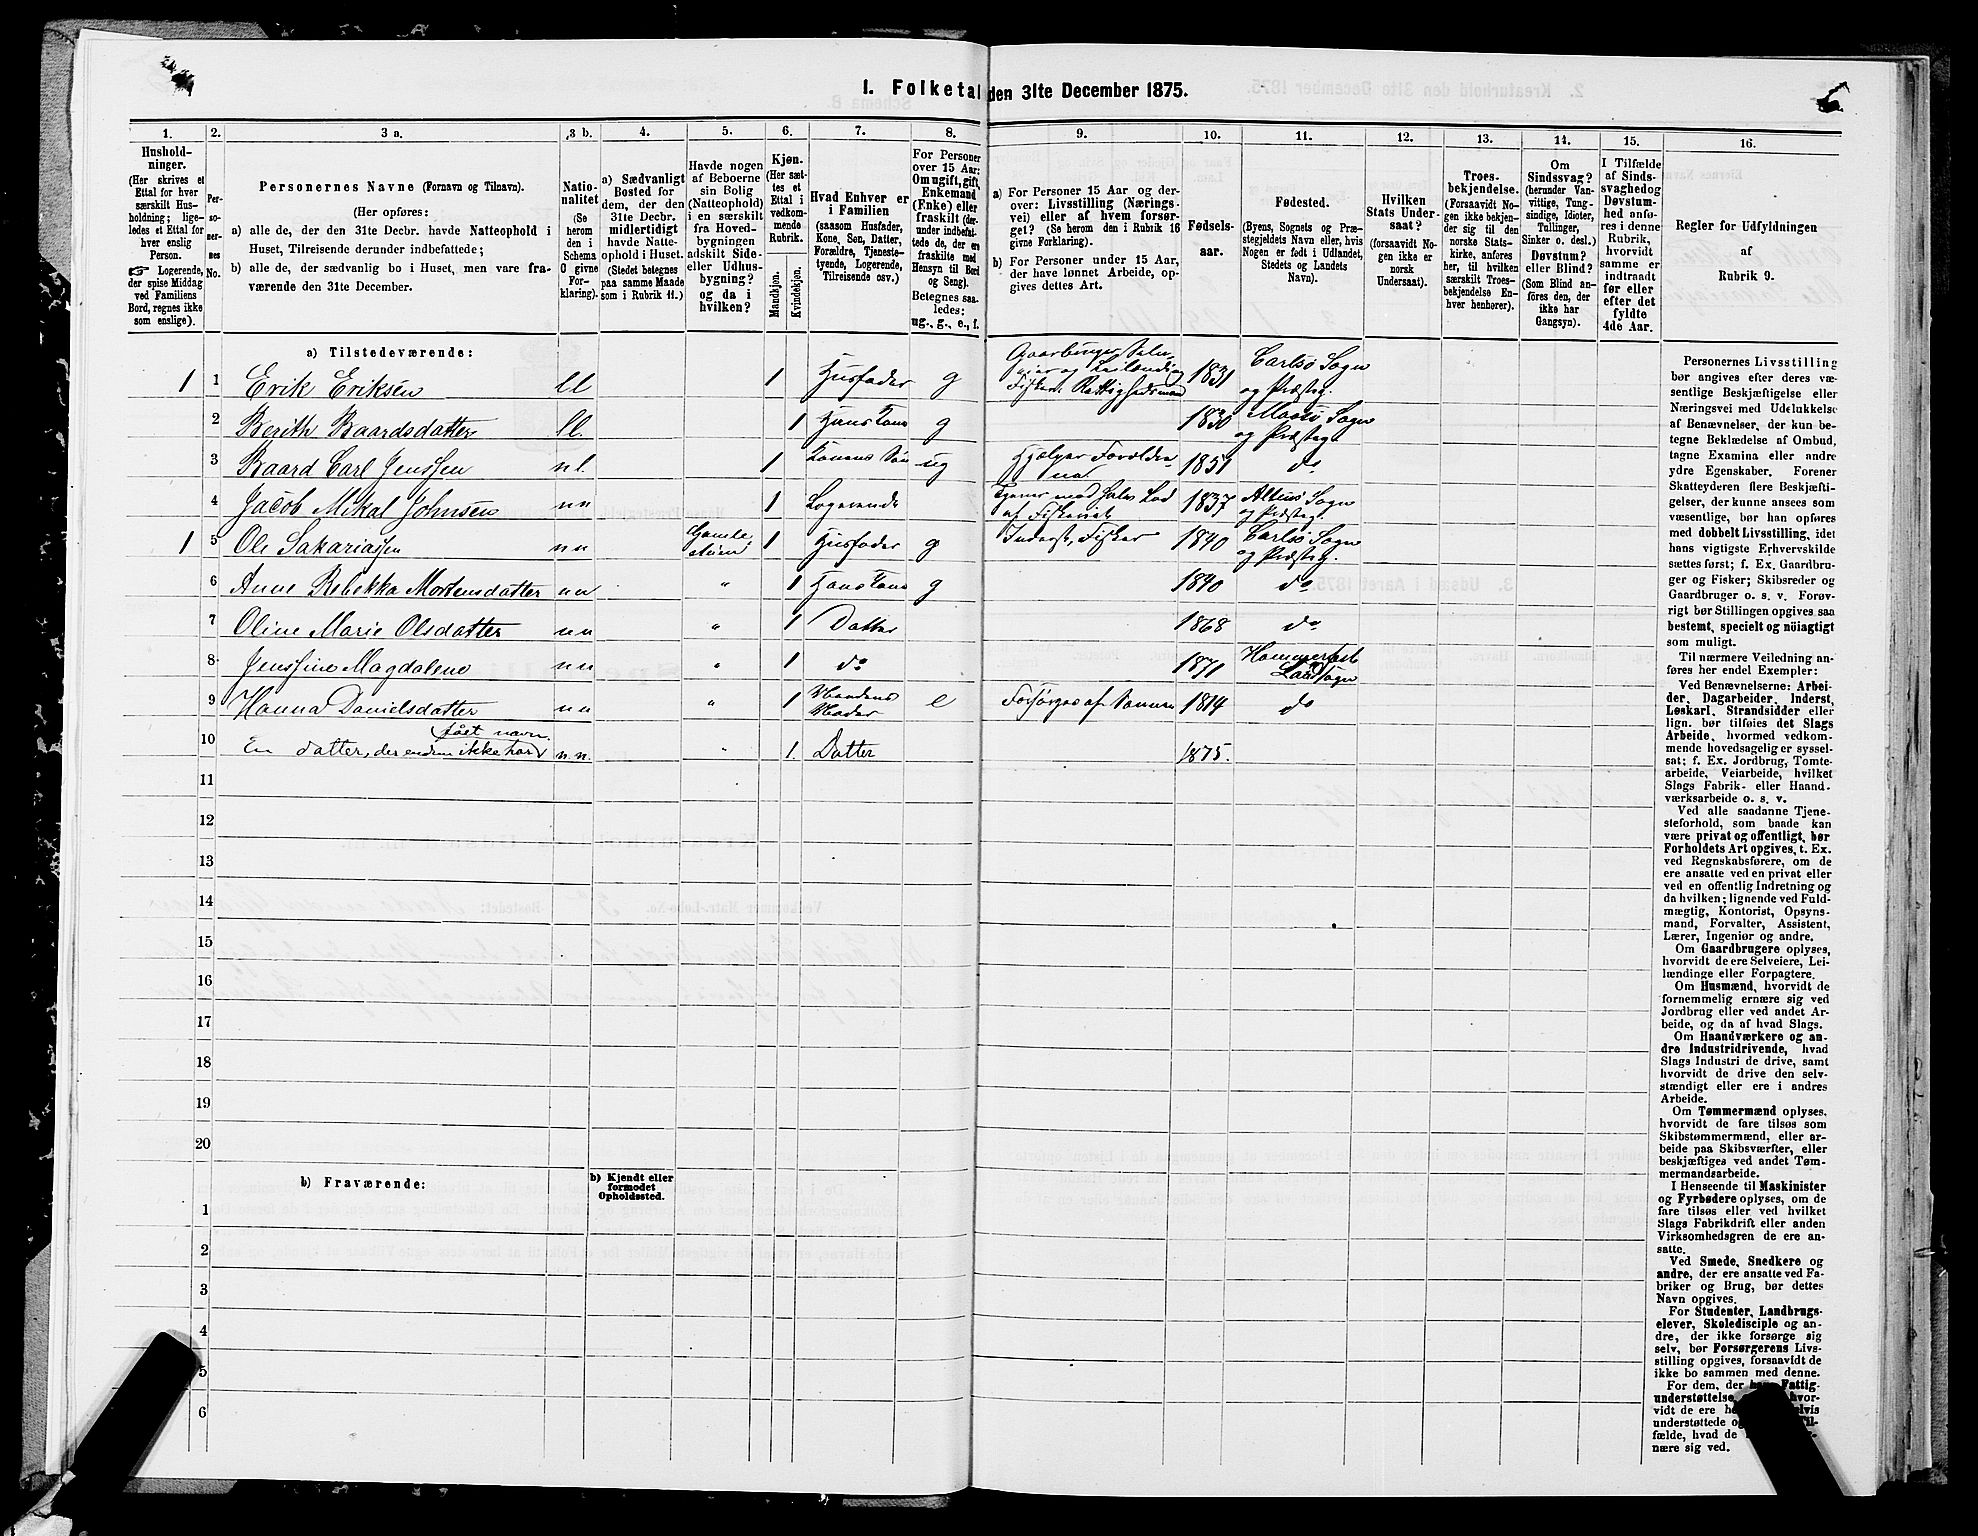 1. Folketal den 31te December 1875.
1.
2.
3 a.
3 b.
4.
5.
6.
7.
8.
9.
10.
11.
12.
13.
14.
15.
16.
Hushold-
ninger.
(Her skrives et
Ettal for hver
særskilt Hus-
holdning; lige-
ledes et Ettal for
hver enslig
Person.
☞ Logerende,
der spise Middag
ved Familiens
Bord, regnes ikke
som enslige).
Per-
so-
ner-
nes
No.
Personernes Navne (Fornavn og Tilnavn).
(Her opføres:
a) alle de, der den 31te Decbr. havde Natteophold i
Huset, Tilreisende derunder indbefattede;
b) alle de, der sædvanlig bo i Huset, men vare fra-
værende den 31te December.
Natio-
nalitet
(Se
herom
den i
Schema
O givne
For-
klaring).
a) Sædvanligt
Bosted for
dem, der den
31te Decbr.
midlertidigt
havde Natte-
ophold i Huset.
(Stedet betegnes
paa samme Maade
som i Rubrik 11.)
Havde nogen
af Beboerne
sin Bolig
(Natteophold)
i en særskilt
fra Hoved-
bygningen
adskilt Side-
eller Udhus-
bygning?
og da i
hvilken?
Kjøn.
(Her sæt-
tes et
Ettal i
vedkom-
mende
Rubrik.
Mandkjøn.
Kvindekjøn.
Hvad Enhver er
i Familien
(saasom Husfader,
Kone, Søn, Datter,
Forældre, Tjeneste-
tyende, Logerende,
Tilreisende osv.)
For Personer
over 15 Aar:
Om ugift, gift,
Enkemand
(Enke) eller
fraskilt (der-
under indbefat-
tede de, der ere
fraskilte med
Hensyn til Bord
og Seng).
Betegnes saa-
ledes:
ug., g., e., f.
a) For Personer 15 Aar og der-
over: Livsstilling (Nærings-
vei) eller af hvem forsør-
get? (Se herom den i Rubrik 16
givne Forklaring).
b) For Personer under 15 Aar,
der have lønnet Arbeide, op-
gives dettes Art.
Fødsels-
aar.
Fødested.
(Byens, Sognets og Præ-
stegjeldets Navn eller, hvis
Nogen er født i Udlandet,
Stedets og Landets
Navn).
Hvilken
Stats Under-
saat?
(forsaavidt No-
gen ikke er
norsk
Undersaat).
Troes-
bekjendelse.
(Forsaavidt No-
gen ikke bekjen-
der sig til den
norske Stats-
kirke, anføres
her, til hvilken
særskilt Troes-
bekjendelse En-
hver henhører).
Om
Sindssvag?
(herunder Van-
vittige, Tung-
sindige, Idioter,
Tullinger,
Sinker o. desl.)
Døvstum?
eller Blind?
(Som Blind an-
føres den, der
ikke har
Gangsyn).
I Tilfælde
af Sinds-
svaghed og
Døvstum-
hed anfø-
res i denne
Rubrik,
hvorvidt
samme er
indtraadt
før eller
efter det
fyldte
4de Aar.
Regler for Udfyldningen
af
Rubrik 9.
a) Tilstedeværende:
1 1 Erik Eriksen ll 1 Husfader g Gaardbruger, Selv-
eier og Leilænding
Fisker. Rettighedsmand 1831 Carlsø Sogn
og Præsteg.
2 Berith Baardsdatter ll. 1 Hans Kone g 1830 Maasø Sogn
og Præsteg.
3 Baard Carl Jenssen nl. 1 Konens Søn ug Hjælper Forældre-
ne 1851 do
4 Jacob Mikal Johnsen nn 1 Logerende
af Fiskeriet 1837 Sogn
og Præsteg.
1 5 Ole Sakariassen nn Gamle
1 Husfader g Inderst, Fisker 1840 Carlsø Sogn
og Præsteg.
6 Anne Rebekka Mortensdatter nn " 1 Hans Kone g 1840 do
7 Oline Marie Olsdatter nn " 1 Datter 1868 do
8 Jenssine Magdalene nn " 1 do 1871 Hammerfest
Landsogn
9 Hanna Danielsdatter nn " 1 Mandens
Moder e Forsørges af Sønnen 1814 do
10 En datter, der endnu ikke har
fået navn. n.n. " 1. Datter 1875.
11
12
13
14
15
16
17
18
19
20
b) Fraværende:
b) Kjendt eller
formodet
Opholdssted.
1
2
3
4
5
6
Personernes Livsstilling
bør angives efter deres væ-
sentlige Beskjæftigelse eller
Næringsvei med Udelukkelse
af Benævnelser, der kun be-
tegne Beklædelse af Ombud,
tagne Examina eller andre
ydre Egenskaber. Forener
Skatteyderen flere Beskjæfti-
gelser, der kunne ansees som
væsentlige, bør han opføres
med dobbelt Livsstilling, idet
hans vigtigste Erhvervskilde
sættes først; f. Ex. Gaardbru-
ger og Fisker; Skibsreder og
Gaardbruger o. s. v. Forøv-
rigt bør Stillingen opgives saa
bestemt, specielt og nöiagtigt
som muligt.
Til nærmere Veiledning an-
føres her endel Exempler:
Ved Benævnelserne: Arbei-
der, Dagarbeider, Inderst,
Løskarl, Strandsidder eller
lign. bør tilføies det Slags
Arbeide, hvormed vedkom-
mende hovedsagelig er syssel-
sat; f. Ex. Jordbrug, Tomte-
arbeide, Veiarbeide, hvilket
Slags Fabrik- eller Haand-
værksarbeide o. s. v.
Ved alle saadanne Tjene-
steforhold, som baade kan
være privat og offentligt, bør
Forholdets Art opgives, t. Ex.
ved Regnskabsførere, om de
ere ansatte ved en privat eller
ved en offentlig Indretning og
da hvilken; lignende ved Fuld-
mægtig, Kontorist, Opsyns-
mand, Forvalter, Assistent,
Lærer, Ingeniør og andre.
Om Gaardbrugere oplyses,
hvorvidt de ere Selveiere, Lei-
lændinge eller Forpagtere.
Om Husmænd, hvorvidt de
fornemmelig ernære sig ved
Jordbrug eller ved andet Ar-
beide, og da af hvad Slags.
Om Haandværkere og an-
dre Industridrivende, hvad
Slags Industri de drive, samt
hvorvidt de drive den selv-
stændigt eller ere i andres
Arbeide.
Om Tømmermænd oplyses,
hvorvidt de fare tilsøs som
Skibstømmermænd, eller ar-
beide paa Skibsværfter, eller
beskjæftiges ved andet Tøm-
mermandsarbeide.
I Henseende til Maskinister
og Fyrbødere oplyses, om de
fare tilsøs eller ved hvilket
Slags Fabrikdrift eller anden
Virksomhedsgren de ere an-
satte.
Ved Smede, Snedkere og
andre, der ere ansatte ved Fa-
briker og Brug, bør dettes
Navn opgives.
For Studenter, Landbrugs-
elever, Skoledisciple og an-
dre, der ikke forsørge sig
selv, bør Forsørgerens Livs-
stilling opgives, forsaavidt de
ikke bo sammen med denne.
For dem, der Fattig-
understøttelse, hvor-
vidt de ere
understøttede
fælde, hvad de
nære sig ved.